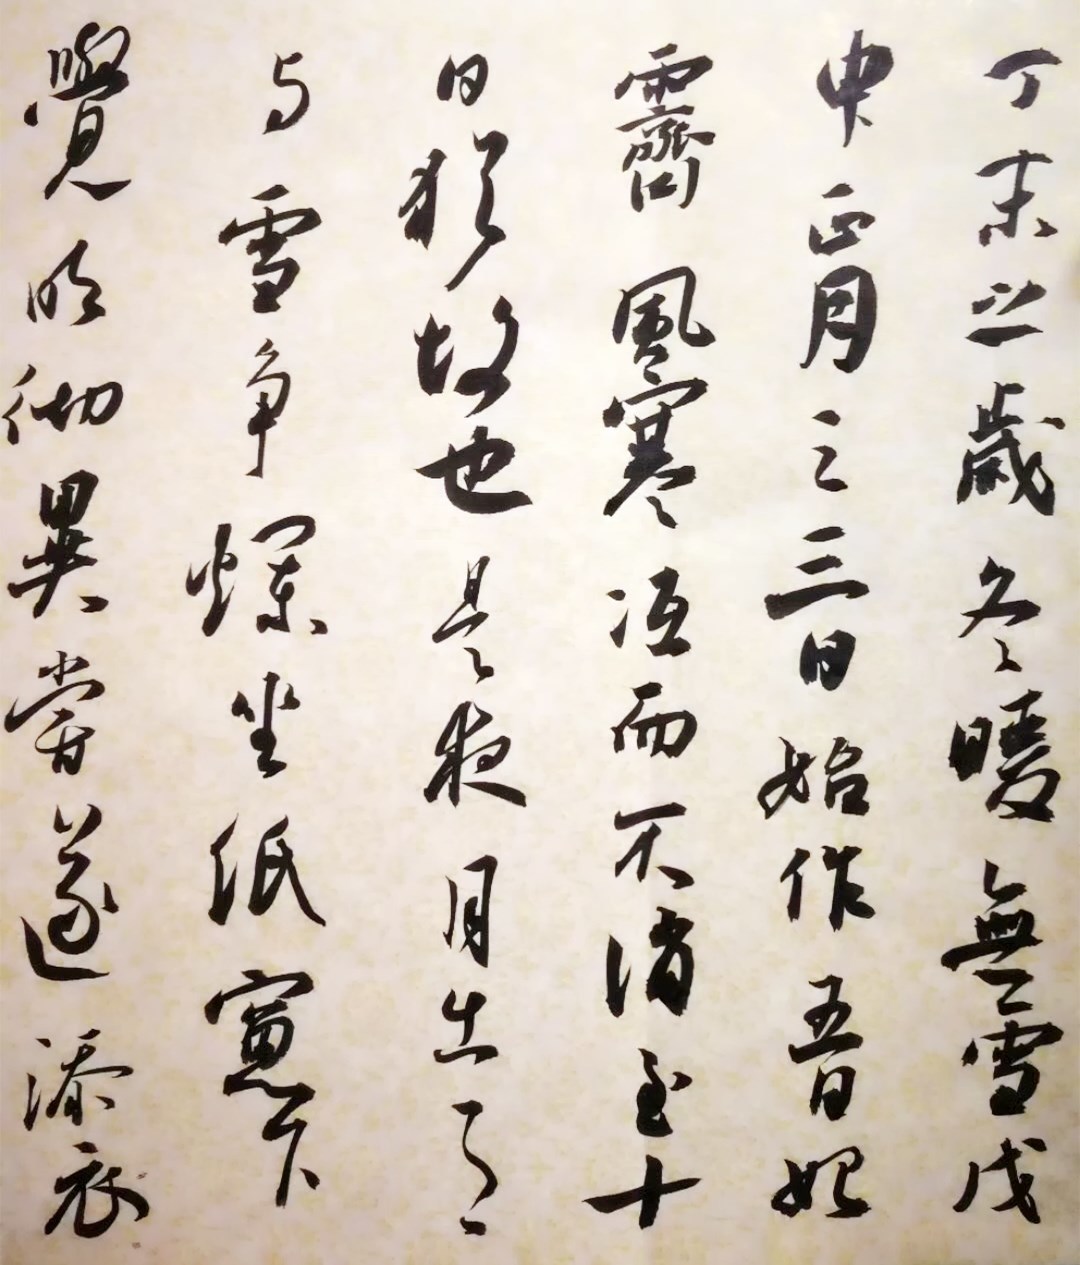 丁未之歲冬暖無雪戊
申正月之三日始作五日始
霽風寒冱而不消至十
日猶故也是夜月出了了
与雪争爛坐紙窻下
覺明徹異嘗遂添衣